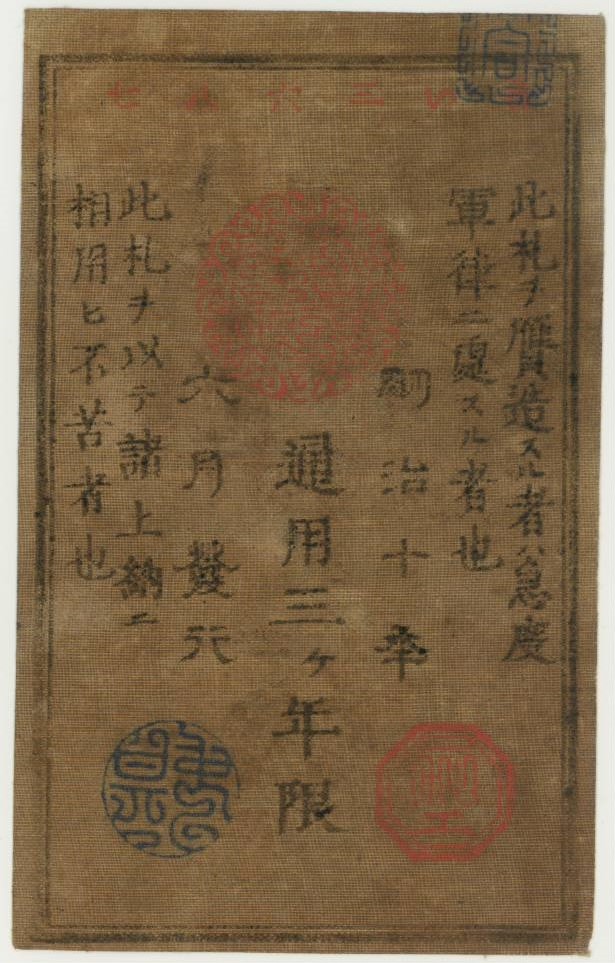 い 六八七
此札ヲ贋造スル者ハ急度
軍律ニ處スル者也
明治十年
通用三ヶ年限
六月發行
此札ヲ以テ諸上納ニ
相用ヒ不苦者也